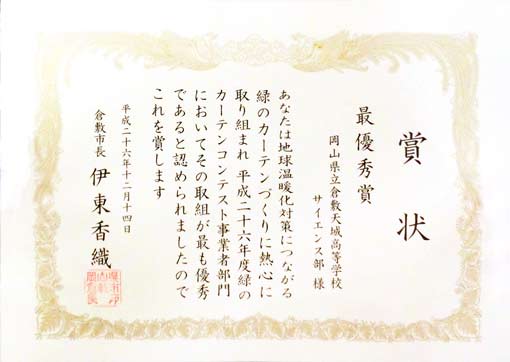 賞状
最優秀賞
岡山県立倉敷天城高等学校
サイエンス部 様
あなたは地球温暖化対策につながる
緑のカーテンづくりに熱心に
取り組まれ 平成二十六年度緑の
カーテンコンテスト事業者部門
においてその取組が最も優秀
であると認められましたので
これを賞します
平成二十六年十二月十四日
倉敷市長 伊東香織